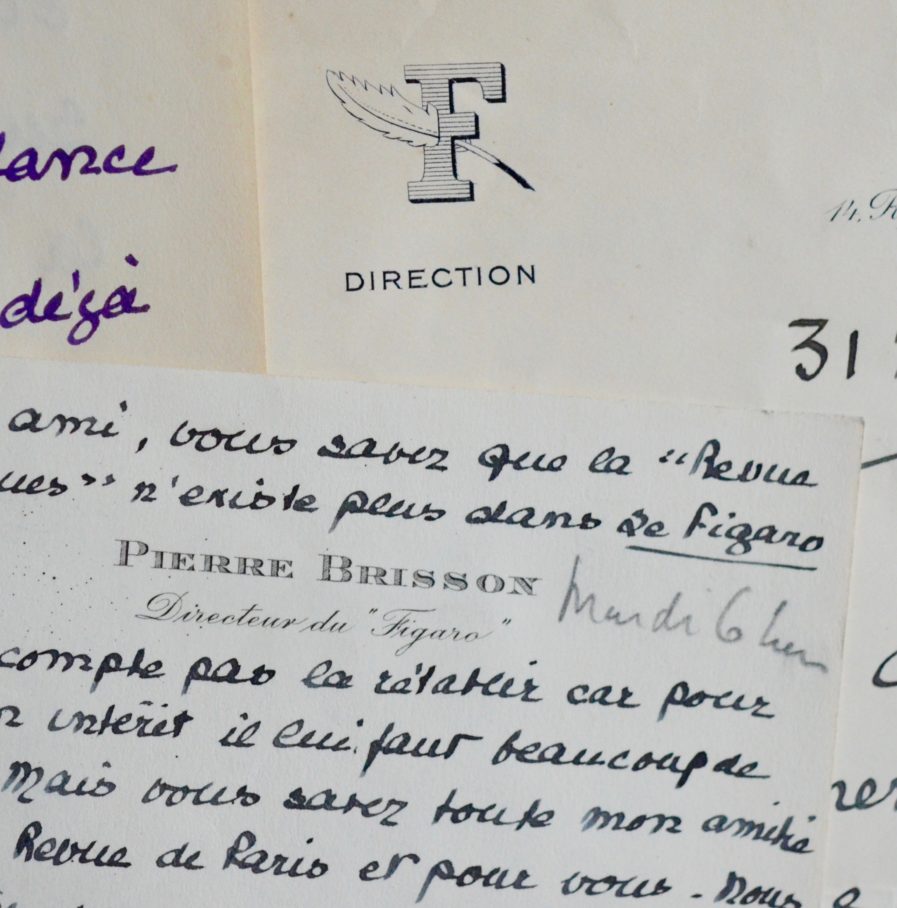 lance
déjà
F
DIRECTION
14, R
31
ami, vous savez que la "Revue
ues" n'existe plus dans Le Figaro
PIERRE BRISSON
Directeur du "Figaro"
Mardi 6 heu
compte pas la rétablir car pour
n intérêt il lui faut beaucoup de
Mais vous savez toute mon amitié
Revue de Paris et pour vous. Nous